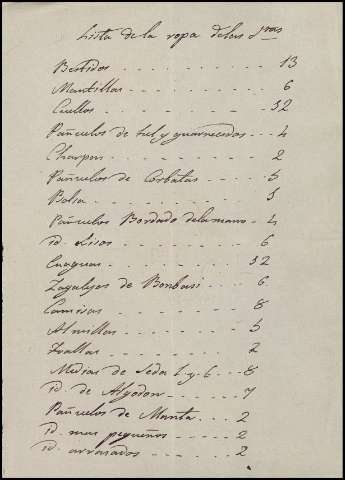 Lista de la ropa de las Sras
Bestidos 13
Mantillas 6
Cuellos 12
Pañuelos de tul y guarnecidos 4
Charpas 2
Pañuelos de Corbatas 5
Bolsa
Pañuelos Bordado de la mano 4
id. Lisos 6
Enaguas 12
Zagalejos de Bonbasi 6
Camisas 8
Almillas 5
Toallas 2
Medias de Seda 8
id. de Algodon 7
Pañuelos de Manta 2
id. mas pequeños 2
id. 2